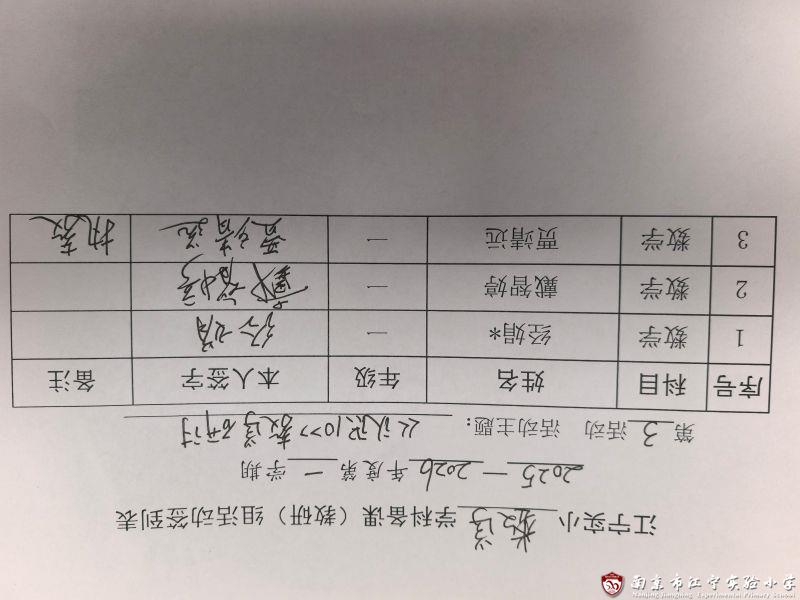 江宁实小 数学 学科备课（教研）组活动签到表
2025—2026 年度第 一 学期
第 3 活动 活动主题：《认识10》教学研讨
序号 科目 姓名 年级 本人签字 备注
1 数学 经娟* 一 经娟
2 数学 戴智婷 一 戴智婷
3 数学 贾靖远 一 贾靖远 执教
南京市江宁实验小学
Nanjing Jiangning Experimental Primary School